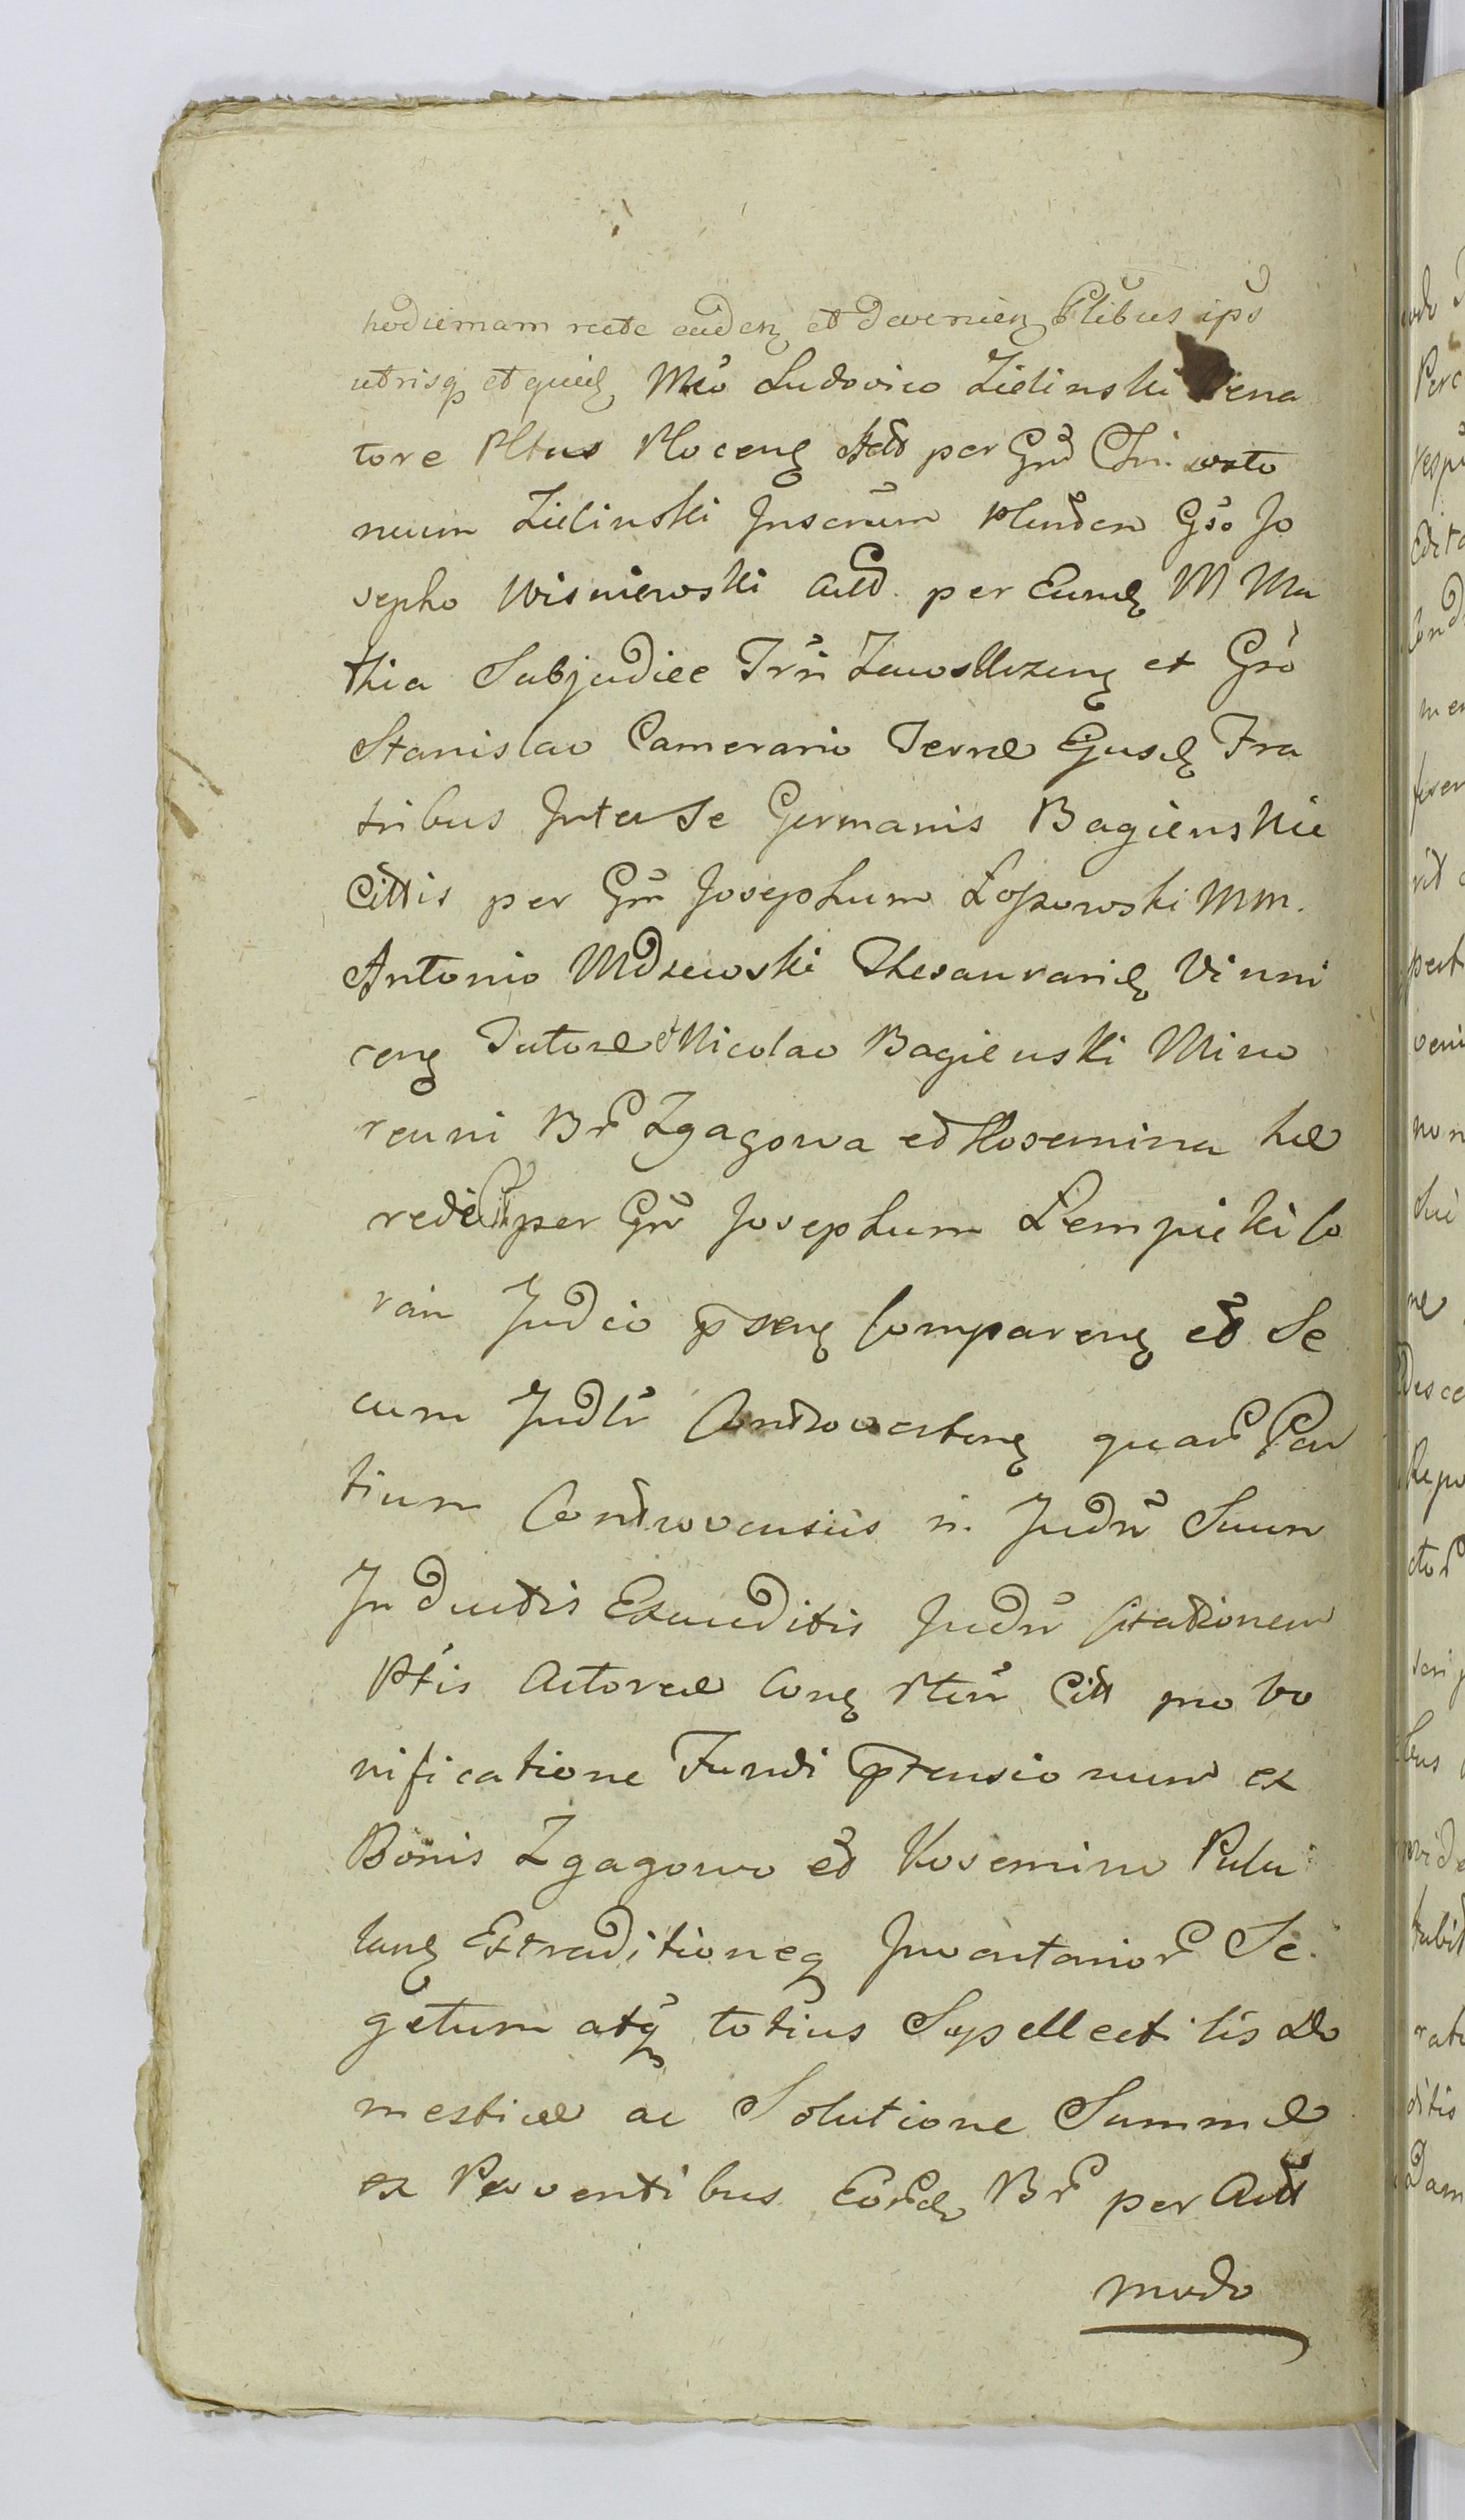 hodiernam recte caden et devenien Ptibus ips
utrisq et quid Mco Ludovico Zielinski Vena
tore Pltus Plocen Actt per Gnd
num Zielinski Plenden Gso Jo
sepho Wisniewski Actt. per Eund M Ma
thia Subjudice Trr Zawskrzen et Gso
Stanislao Camerario Terræ Ejusd Fra
tribus Inter Se Germanis Bagienskie
Citttis per Gm Josephum Łojzewski MM.
Antonio Mdzewski Thesaurarid Vinni
cen Tutore et Nicolao Bagienski Mino
renni Br Zgagowa et Kosemina hæ
rede per Gn Josephum Łempicki Co
ram Judcio psen Comparen et Se
cum Judlr Controverten quar Par
tium Controversiis in Judm Suum
Inductis Exauditis Judm Citationem
Ptis Actoreæ Con Ptem Citt pro bo
nificatione Fundi ptensionum ex
Bonis Zgagowo et Kosemino Pulu
lan Extraditioneq Inventarior Se
getum atq totius Supellectilis Do
mesticæ ac Solutione Summæ
ex Proventibus Eord Br per Actt
modo